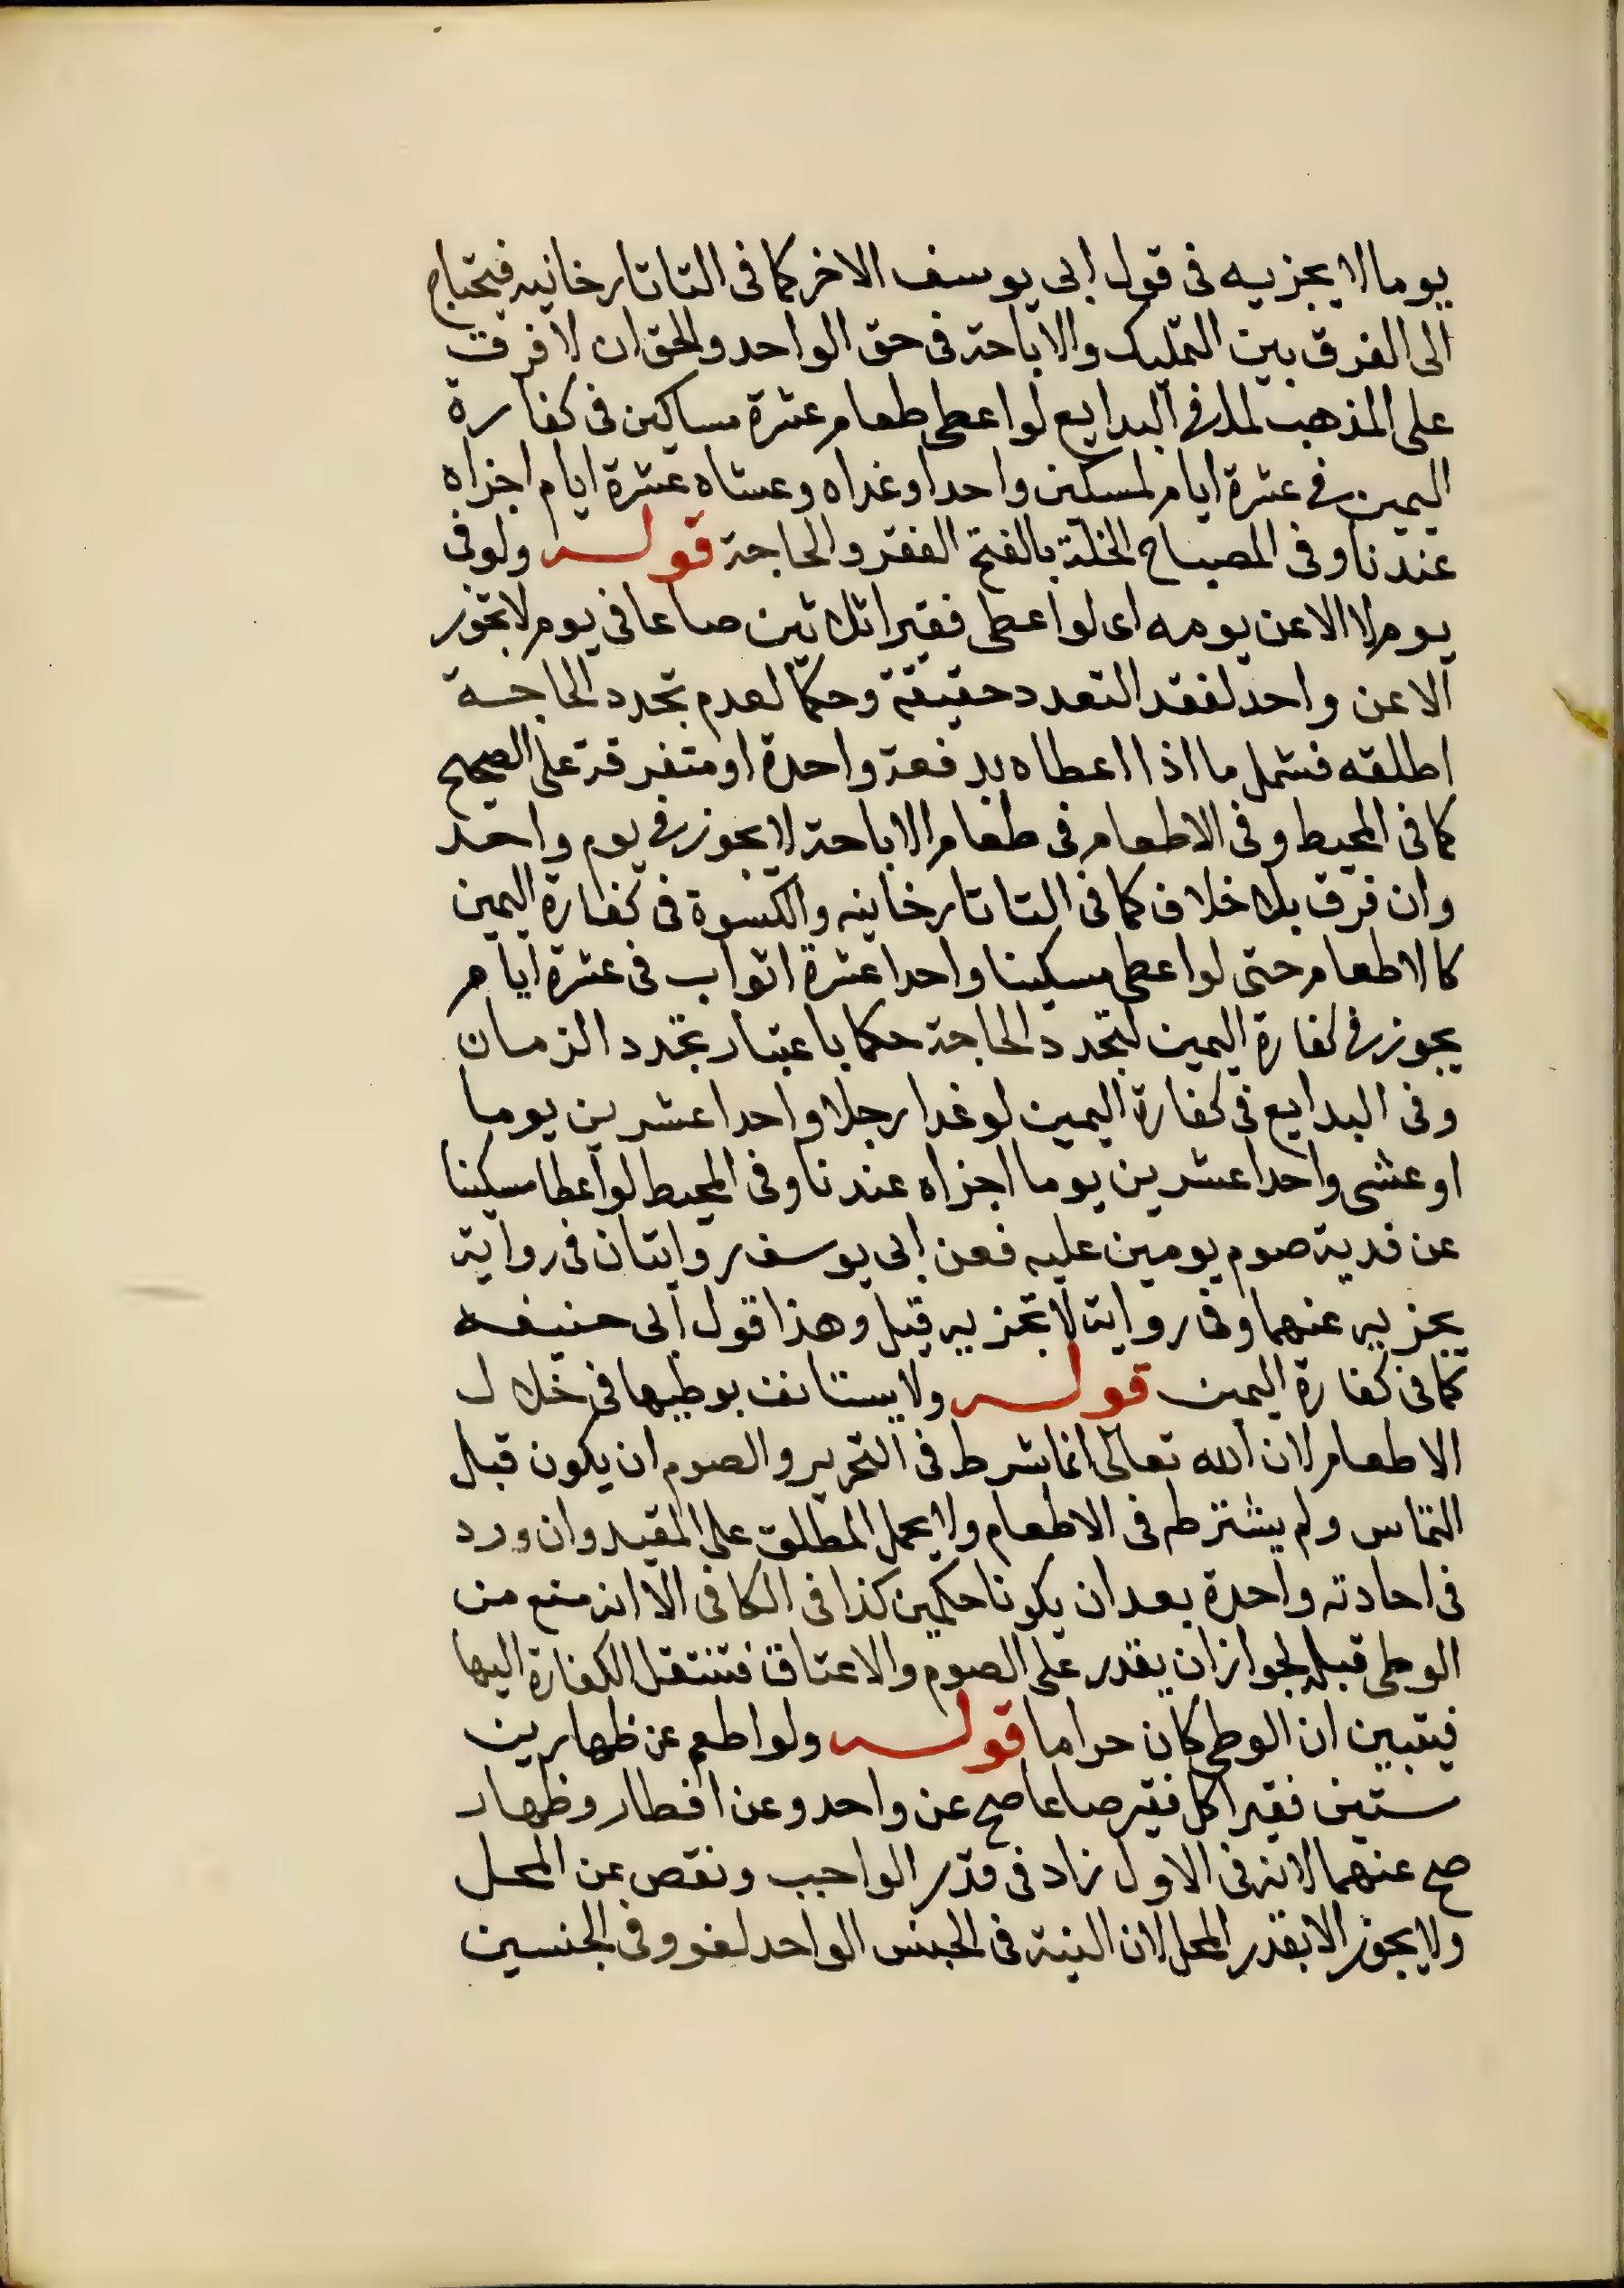 يوما لا يجزيه فى قول ابى يوسف الاخر كما فى التاتارخانيه فيحتاج
الى الفرق بين التمليك والاباحة فى حق الواحد والحق ان لا فرق
على المذهب لما فى البدايع لو اعطى طعام عشرة مساكين فى كفارة
اليمين فى عشرة ايام لمسكين واحد او غداه وعشاه عشرة ايام اجزاه
عندنا وفى المصباح الخلة بالفتح الفقر والحاجة قوله ولو فى
يوم لا الا عن يومه اى لو اعطى فقيرا ثلاثين صاعا فى يوم لا تجوز
الا عن واحد لفقد التعدد حقيقة وحكما لعدم تجدد الحاجة
اطلقه فشمل ما اذا اعطاه بدفعة واحدة او متفرقة على الصحيح
كما فى المحيط وفى الاطعام فى طعام الاباحة لا يجوز فى يوم واحد
وان فرق بلا خلاف كما فى التاتارخانيه والكسوة فى كفارة اليمين
كالاطعام حتى لو اعطى مسكينا واحدا عشرة اثواب فى عشرة ايام
يجوز فى كفارة اليمين لتجدد الحاجة حكما باعتبار تجدد الزمان
وفى البدايع فى كفارة اليمين لو غدا رجلا واحدا عشرين يوما
او عشى واحدا عشرين يوما اجزاه عندنا وفى المحيط لو اعطا مسكينا
عن فدية صوم يومين عليه فعن ابى يوسف روايتان فى رواية
يجزيه عنهما وفى رواية لا تجزيه قيل وهذا قول ابى حنيفه
كما فى كفارة اليمين قوله ولا يستانف بوطيها فى خلال
الاطعام لان الله تعالى انما شرط فى التحرير والصوم ان يكون قبل
التماس ولم يشترطه فى الاطعام ولا يحمل المطلق على المقيد وان ورد
فى احادثه واحدة بعد ان يكونا حكمين كذا فى الكافى الا انه منع من
الوطى قبله لجواز ان يقدر على الصوم والاعتاق فتنتقل الكفارة اليها
فيتبين ان الوطى كان حراما قوله ولو اطعم عن ظهارين
ستين فقيرا كل فقير صاعا صح عن واحد وعن افطار وظهار
صح عنهما لانه فى الاول زاد فى قدر الواجب ونقص عن المحل
ولا يجوز الا بقدر المحل لان النية فى الجنس الواحد لغو وفى الجنسين